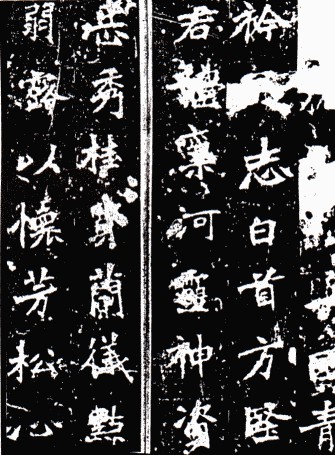 青
衿志白首方堅
君體稟河靈神資
岳秀桂質蘭儀點
弱露以懷芳松心